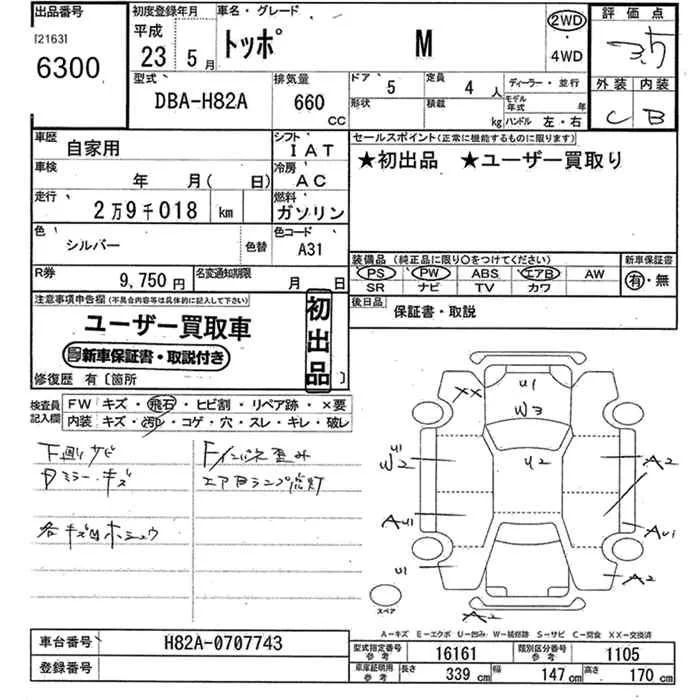 出品番号
[2163]
6300
初度登録年月
平成
23 5月
車名・グレード
トッポ M
2WD
・
4WD
評価点
3.5
外装 内装
C B
型式
DBA-H82A
排気量
660
CC
ドア 5
定員 4 人
ディーラー・並行
形状
積載 kg
モデル年式 年
ハンドル 左・右
車歴 自家用
シフト IAT
車検 年 月( 日)
冷房 AC
走行 2万9千018 km
燃料 ガソリン
色 シルバー 色替
色コード A31
R券 9,750円
名変通知期限 月 日
セールスポイント(正常に機能するものに限ります)
★初出品 ★ユーザー買取り
装備品(純正品に限り〇をつけてください)
PS PW ABS エアB AW
SR ナビ TV カワ
新車保証書
有・無
後日品 保証書・取説
注意事項申告欄(不具合内容等は具体的に記入して下さい)
ユーザー買取車
新車保証書・取説付き
初出品
修復歴 有〔箇所 〕
検査員記入欄
FW キズ・飛石・ヒビ割・リペア跡・×要
内装 キズ・汚レ・コゲ・穴・スレ・キレ・破レ
下廻りサビ
ミラーキズ
各キズ凹ホシュウ
F/インパネ歪み
エアBランプ点灯
U1
W3
XX
U2
U1
W2
A2
AU1
AU1
U1
A2
A2
スペア
A-キズ E-エクボ U-凹み W-補修跡 S-サビ C-腐食 XX-交換済
車台番号 H82A-0707743
登録番号
型式指定番号 参考 16161
類別区分番号 参考 1105
車庫証明用 参考 長さ 339 cm 幅 147 cm 高さ 170 cm